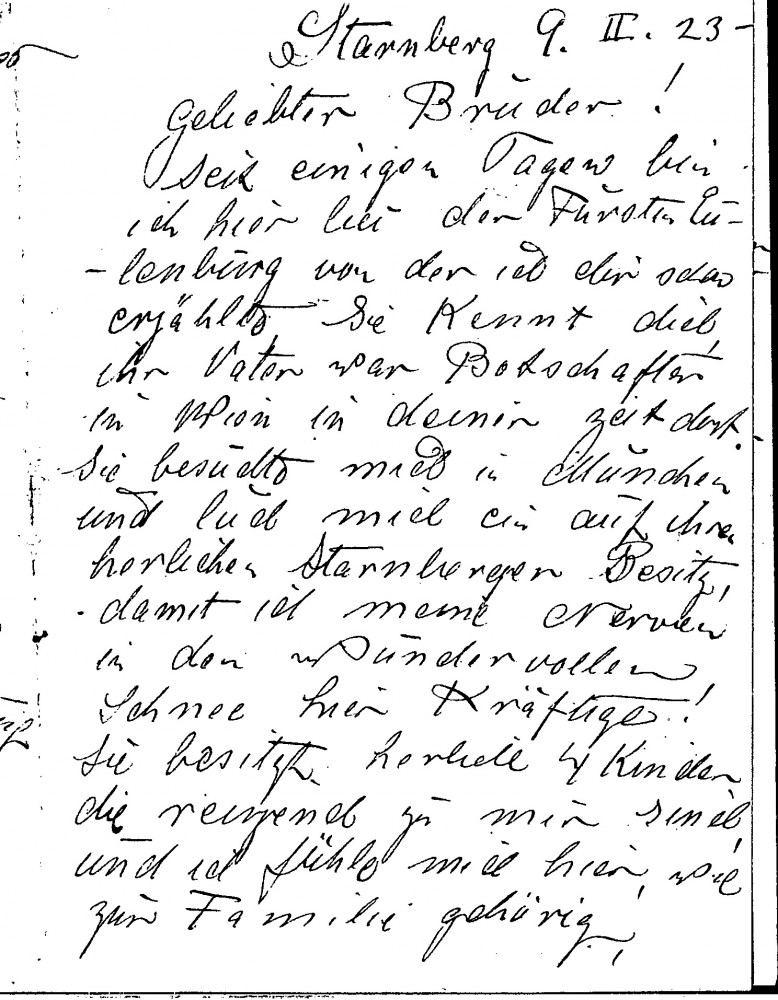 Starnberg 9. II. 23-
Geliebter Bruder!
Seit einigen Tagen bin
ich hier bei der Fürstin Eu-
-lenburg von der ich dir schon
erzählte. Sie Kennt dich,
ihr Vater war Botschafter
in Wien in deiner Zeit dort.
Sie besuchte mich in München
und lud mich ein auf ihren
herlichen Starnberger Besitz,
damit ich meine Nerven
in den wundervollen
Schnee hier Kräftige!
Sie besitzt herliche 4 Kinder
die reizend zu mir sind,
und ich fühle mich hier, wie
zur Familie gehörig,